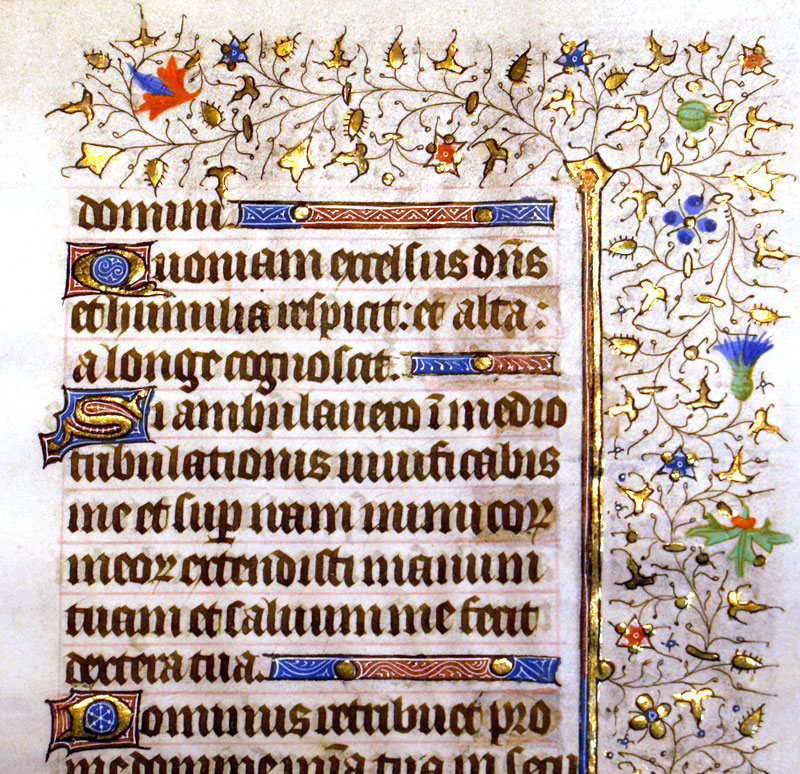 domini
Quoniam excelsus dñs
et humilia respicit: et alta:
a longe cognoscit.
Si ambulavero ĩ medio
tribulationis vivificabis
me et sup iram inimicoꝝ
meoꝝ extendisti manum
tuam et salvum me fecit
dextera tua.
Dominus retribuet pro
me domine mĩa tua in secu